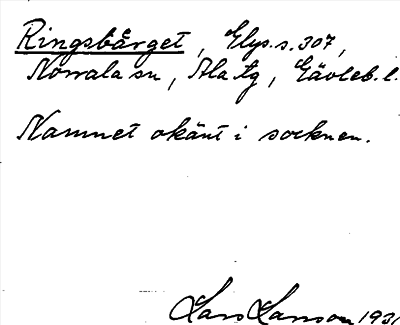 Ringsbärget, Elgs.s.307,
Norrala sn, Ala tg, Gävleb.l.
Namnet okänt i socknen.
Lars Larsson 1931